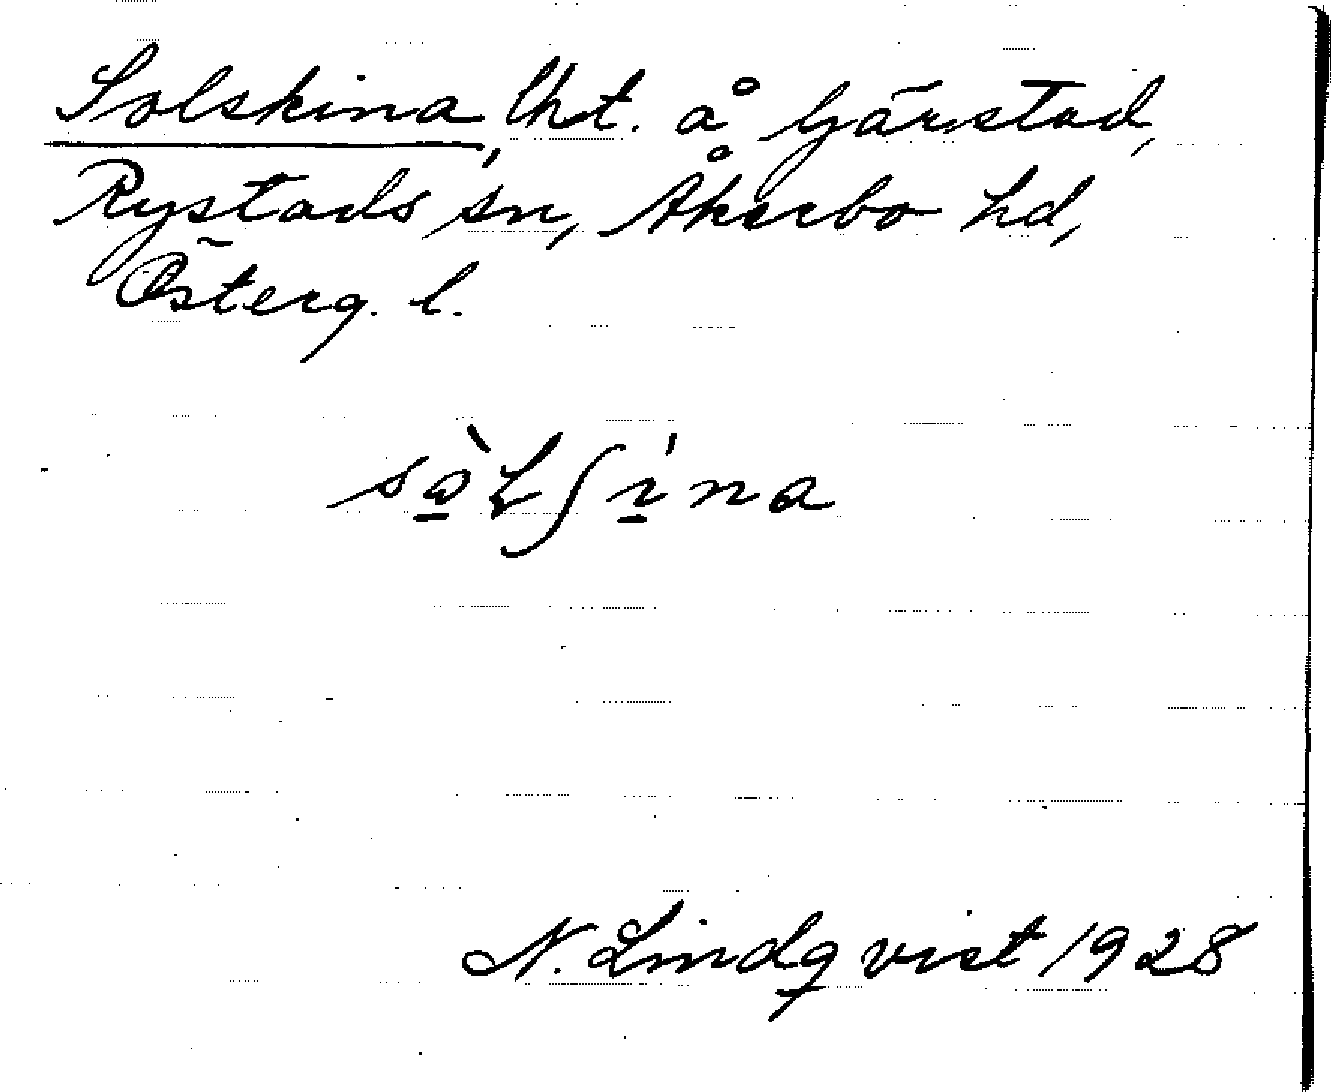 Solskina, lht. å Gärstad,
Rystads sn, Åkerbo hd,
Österg. l.
N. Lindqvist 1928